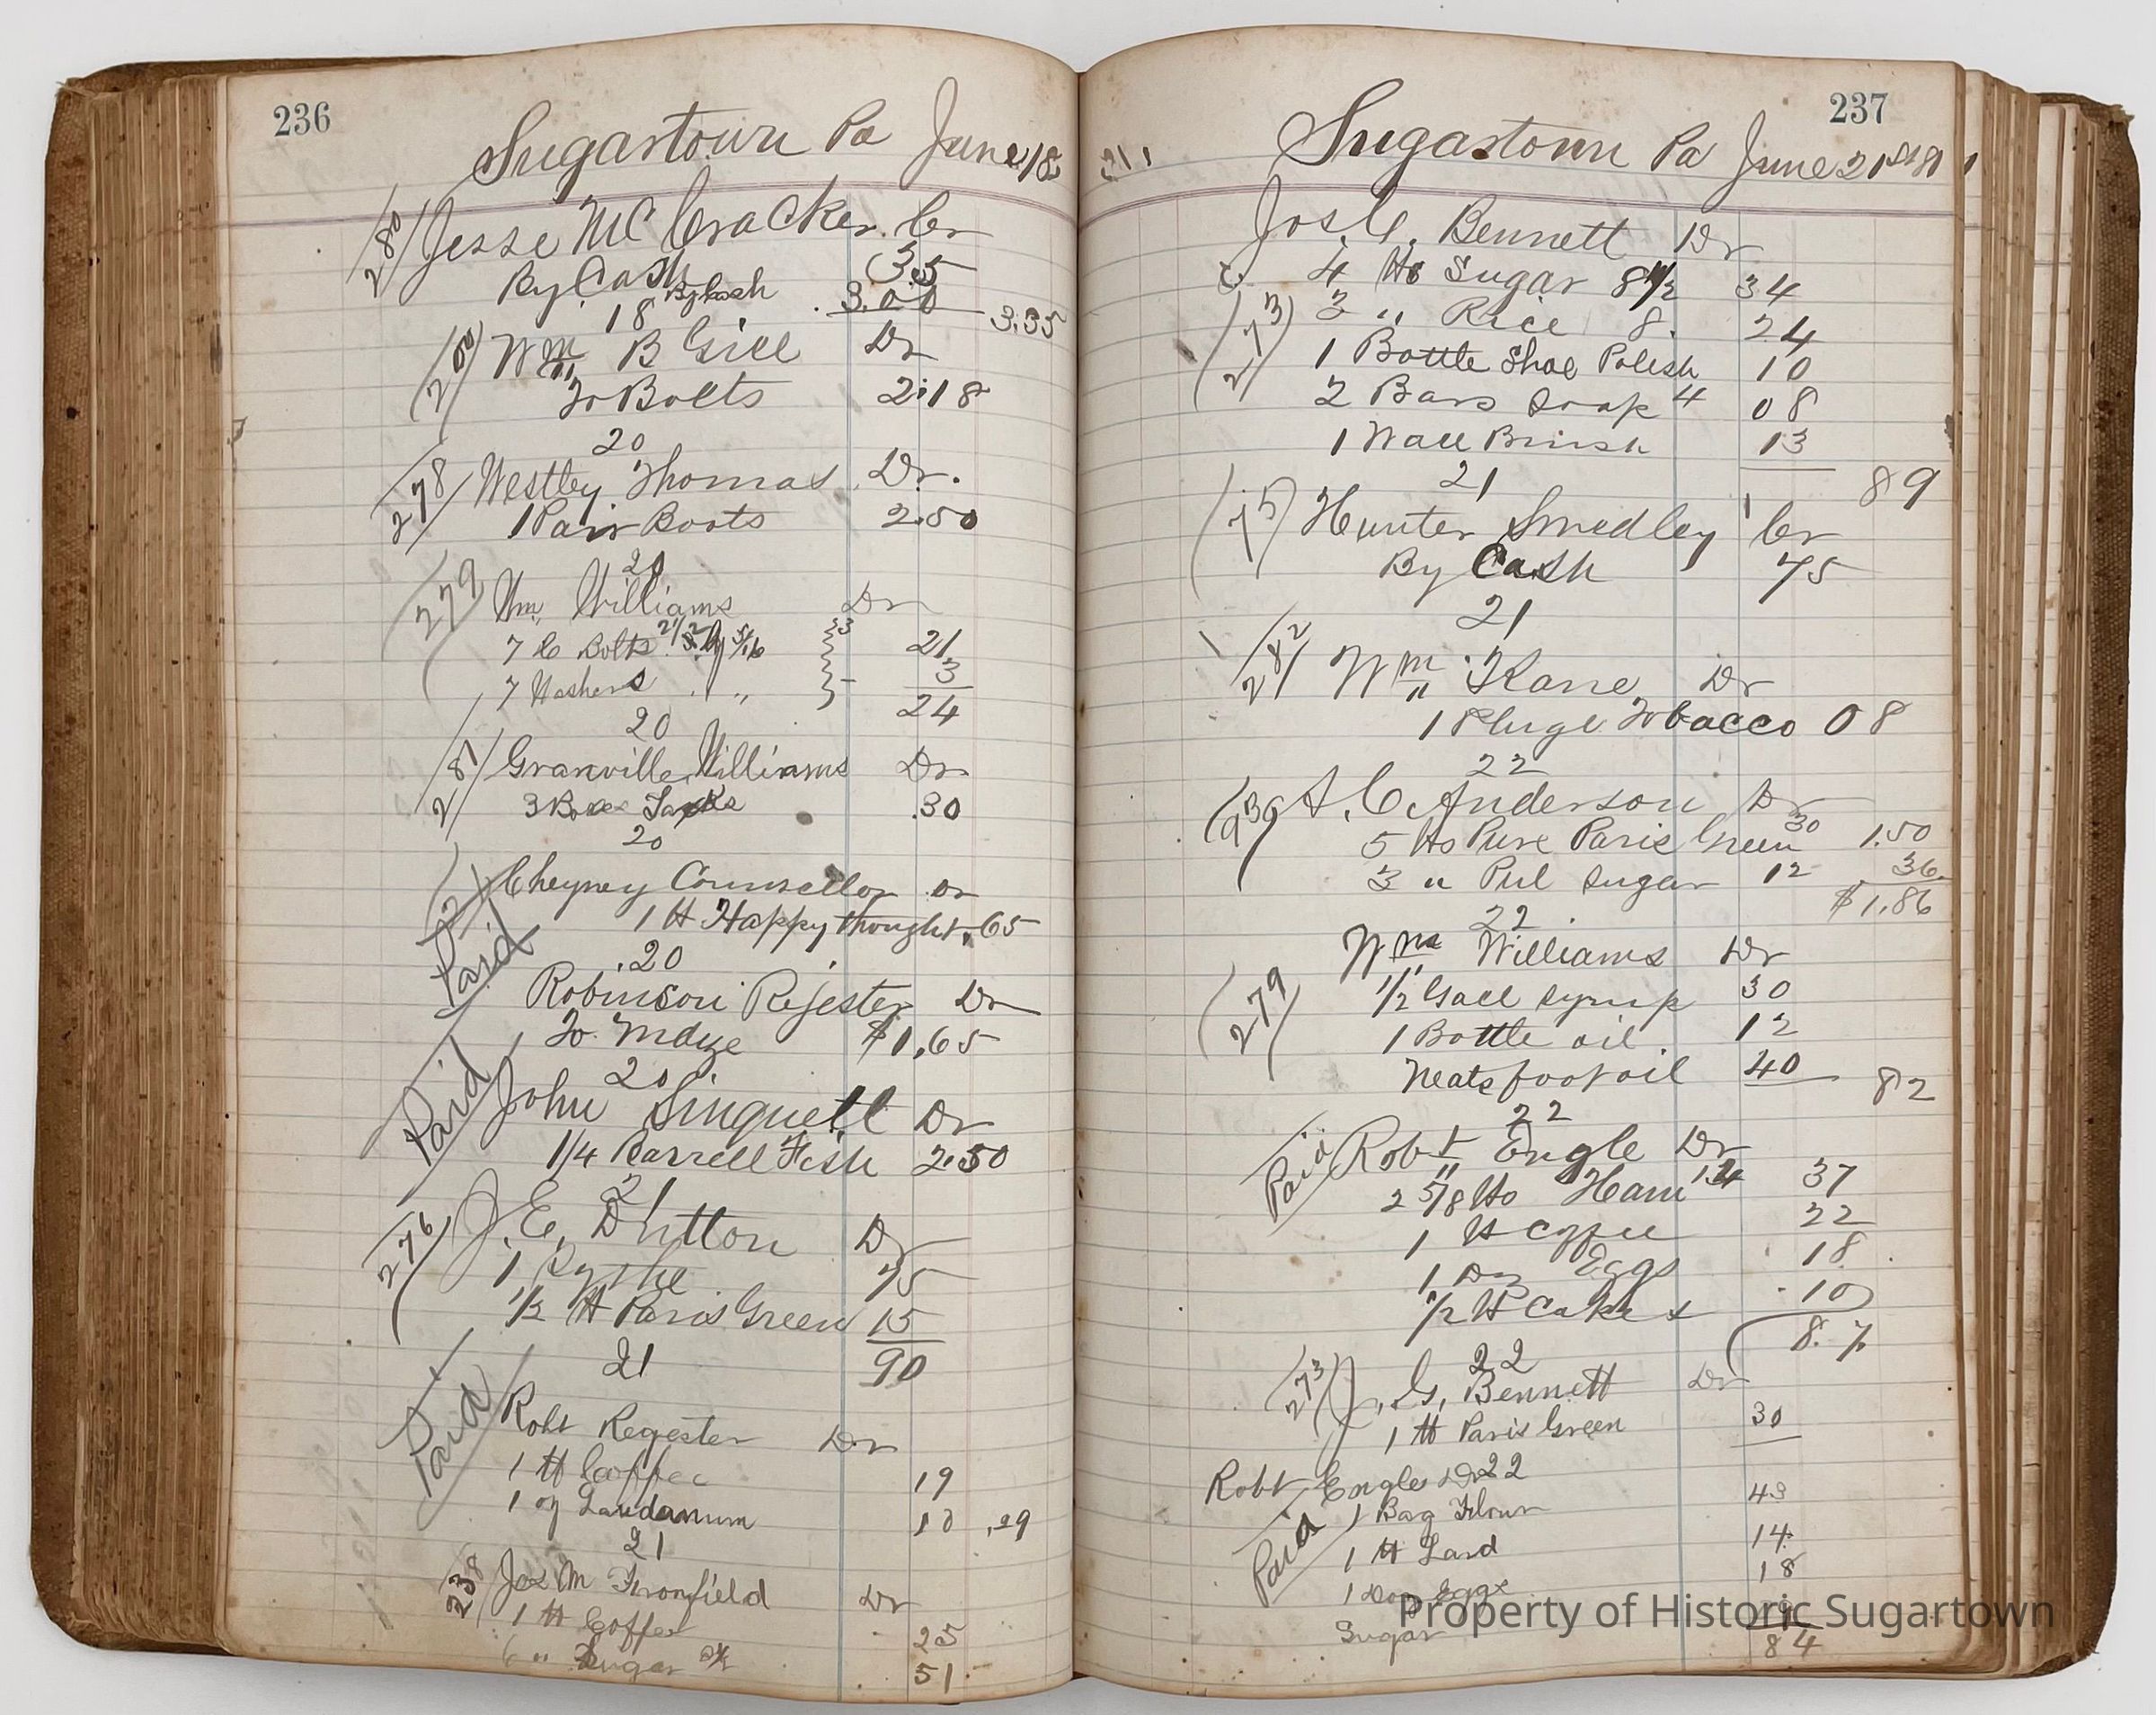 236
Sugartown Pa June 18
280 Jesse McCracken Cr
By Cash 35
18 By Cash 3.00 3.35
200 Wm B Gill Dr
To Bolts 2.18
20
278 Westley Thomas Dr.
1 Pair Boots 2.50
20
279 Wm Williams Dr
7 C Bolts 2 1/2 by 5/16 3 21
7 Washers " 3
20 24
281 Granville Williams Dr
3 Boxes Tacks .30
20
Cheyney Counsellor Dr
Paid 1 H Happy thought .65
.20
Robinson Rejester Dr
To Mdze $1.65
20
Paid John Singuett Dr
1/4 Barrell Fish 2.50
21
276 J. E. Dutton Dr
1 Sythe 75
1/2 H Paris Green 15
21 90
Paid Robt Regester Dr
1 H Coffee 19
1 oz Laudanum 10 .29
21
238 Jos M Fronfield Dr
1 H Coffee 25
6 " Sugar 8 1/2 51
237
Sugartown Pa June 21st 81
Jos. C. Bennett Dr
4 Hs Sugar 8 1/2 34
273 3 " Rice 8. 24
1 Bottle Shoe Polish 10
2 Bars Soap 4 08
1 Wall Brush 13
21 89
75 Hunter Smedley Cr
By Cash 75
21
282 Wm Kane Dr
1 Pluge Tobacco 08
22
239 A. C. Anderson Dr
5 Hs Pure Paris Green 30 1.50
3 " Pul Sugar 12 36
22 $1.86
Wm Williams Dr
279 1/2 Gall Syrup 30
1 Bottle oil 12
Neatsfoot oil 40 82
22
Paid Robt Engle Dr
2 5/8 Hs Ham 14 37
1 H Coffee 22
1 Dz Eggs 18
1/2 H Cakes 10
87
22
273 J. G. Bennett Dr
1 H Paris Green 30
Robt Engle Dr 22
1 Bag Flour 43
Paid 1 H Lard 14
1 Doz Eggs 18
Sugar
84
Property of Historic Sugartown